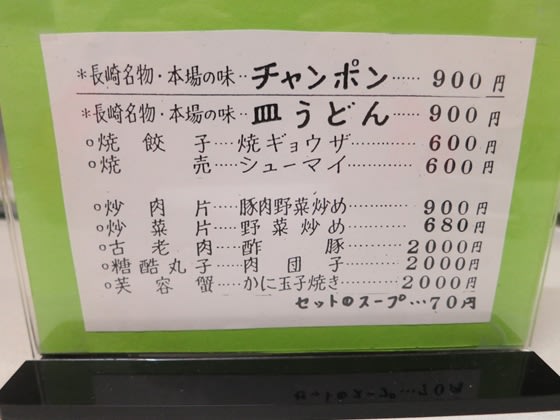 *長崎名物・本場の味‥チャンポン……900円
*長崎名物・本場の味‥皿うどん……900円
○焼餃子…焼ギョウザ………600円
○焼売……シューマイ………600円
○炒肉片……豚肉野菜炒め………900円
○炒菜片……野菜炒め………680円
○古老肉……酢豚………2000円
○糖酷丸子…肉団子………2000円
○芙容蟹……かに玉子焼き……2000円
セットのスープ…70円
セットのスープ…70円